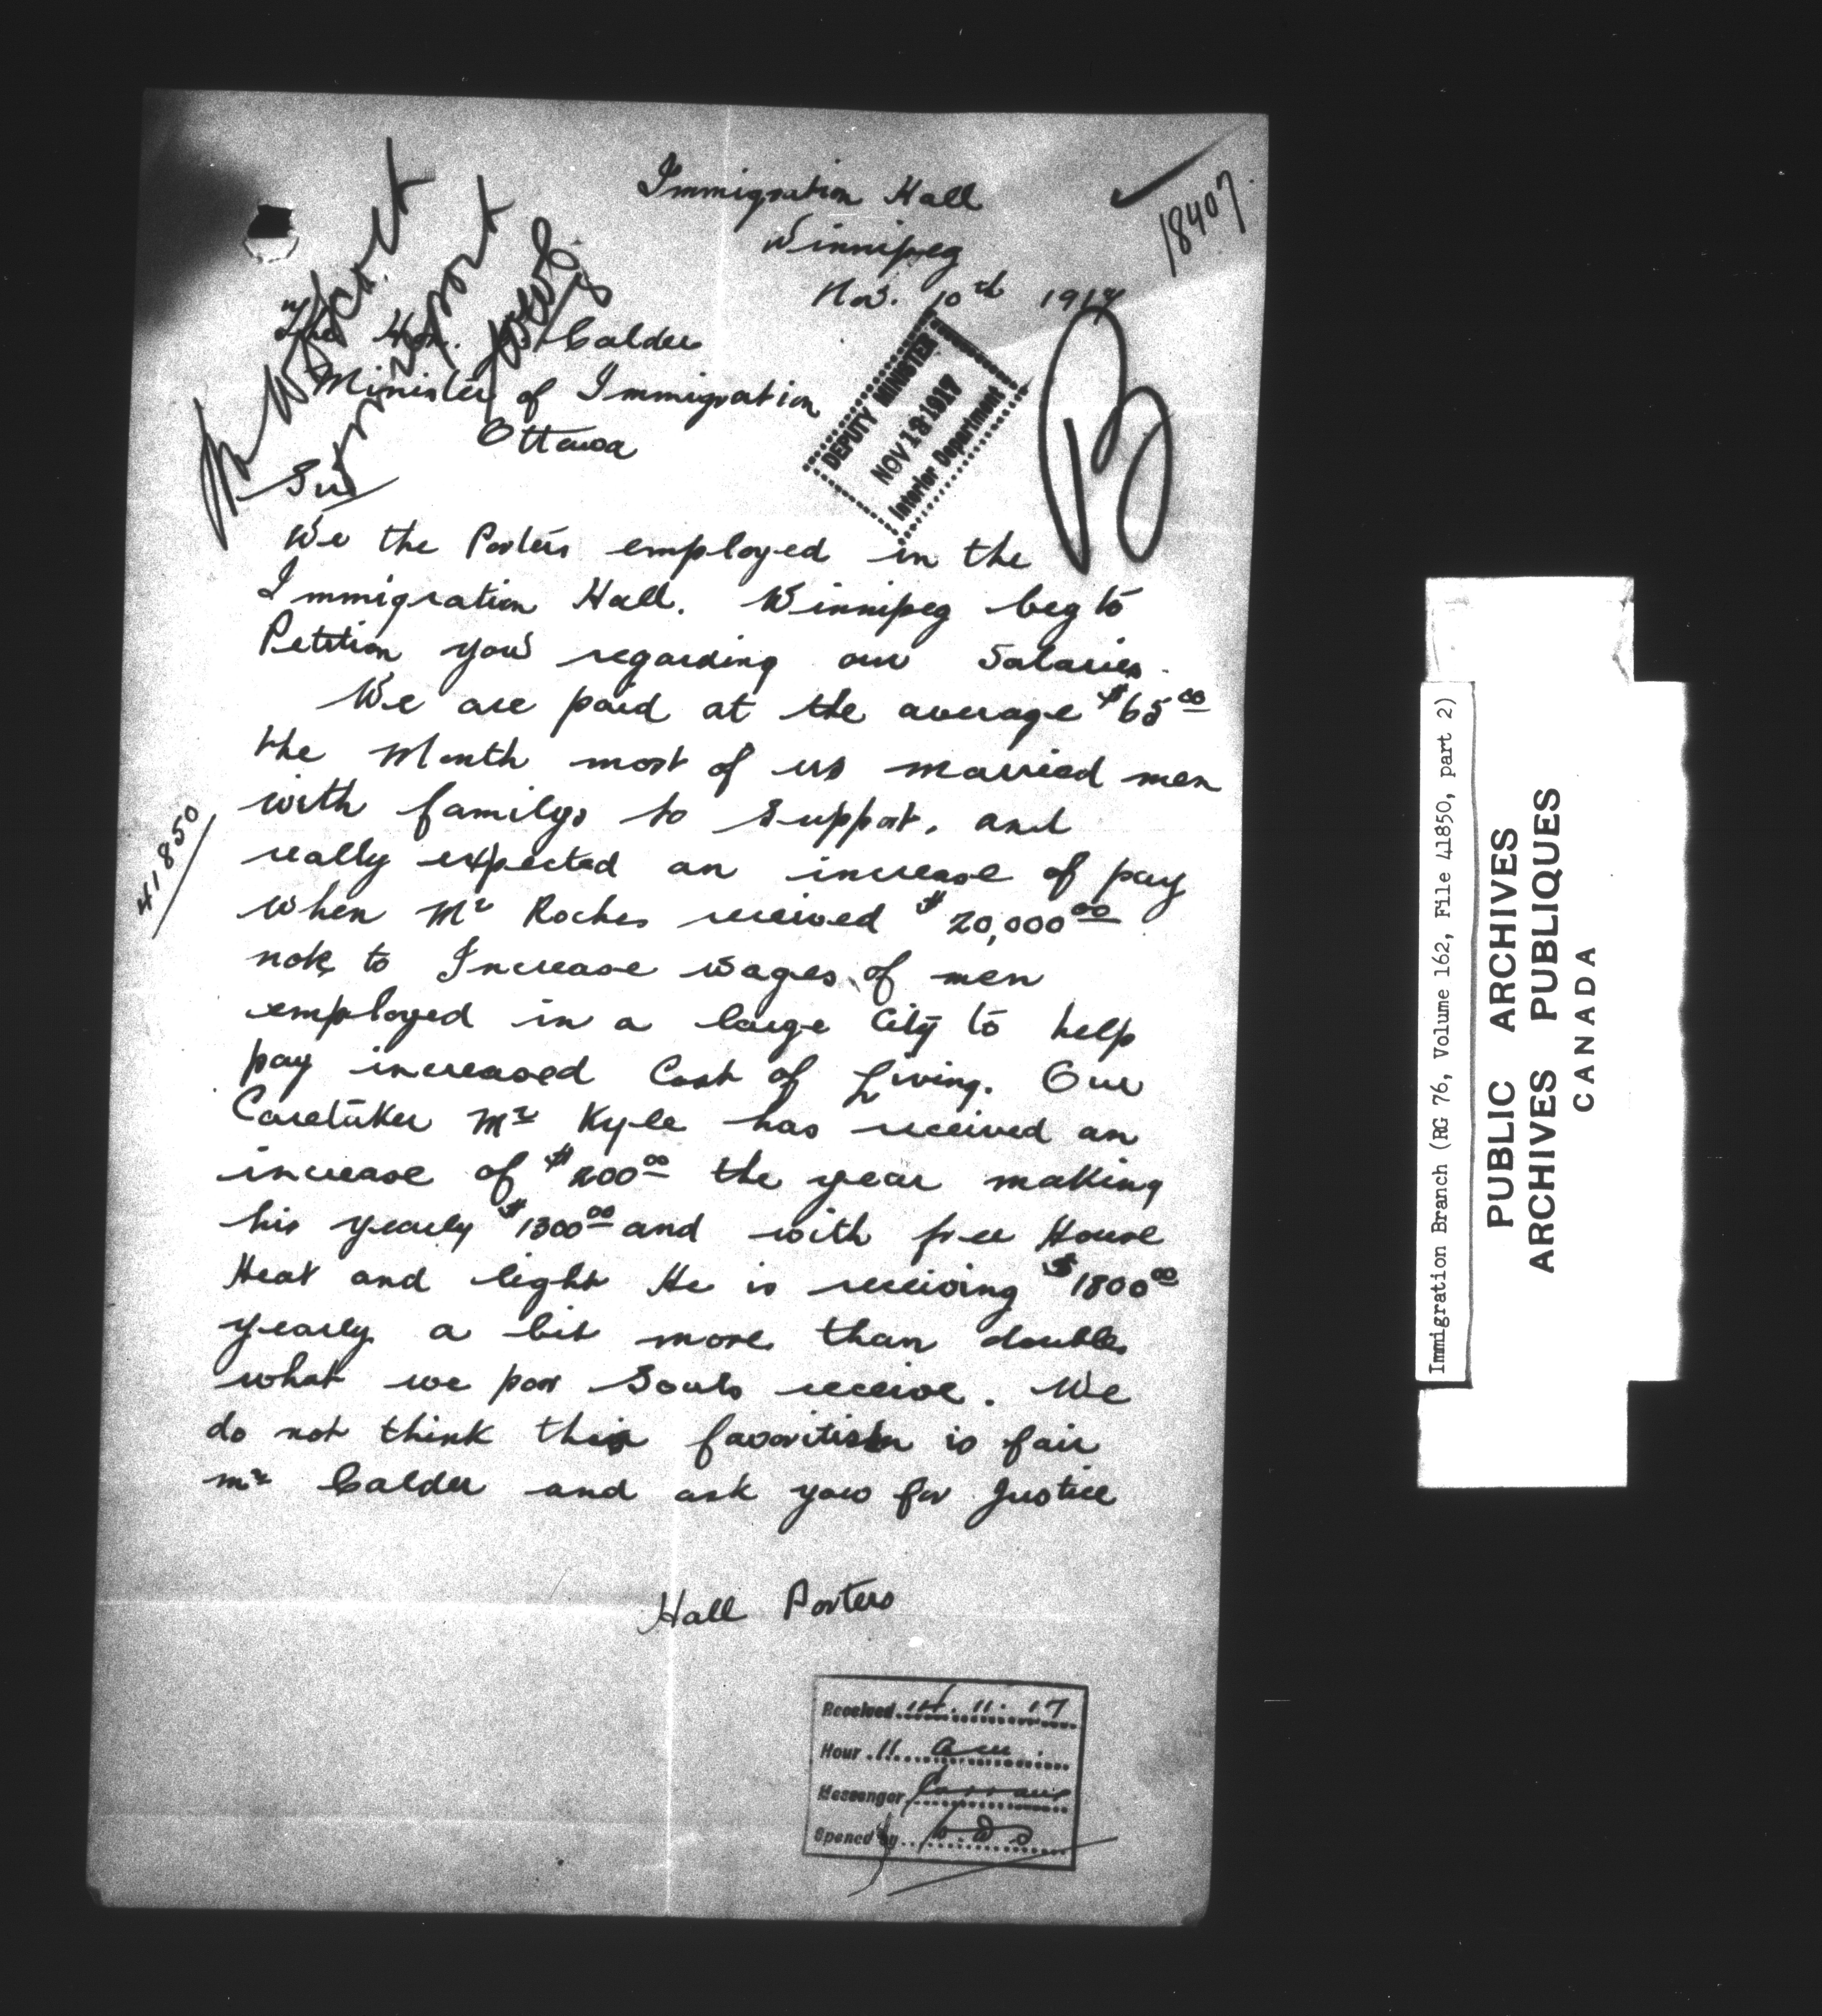 Immigration Hall
Winnipeg
Nov. 10th 1917
18407
The Hon. Calder
Minister of Immigration
Ottawa
DEPUTY MINISTER
NOV 12 1917
Interior Department
B
Sir
We the Porters employed in the
Immigration Hall. Winnipeg beg to
Petition you regarding our Salaries.
We are paid at the average $65.00
the Month most of us married men
with familys to support, and
really expected an increase of pay
when Mr Roches received $20,000.00
note to Increase wages of men
employed in a large City to help
pay increased Cost of Living. Our
Caretaker Mr Kyle has received an
increase of $200.00 the year making
his yearly $1300.00 and with free House
Heat and light He is receiving $1800.00
yearly a bit more than double
what we poor Souls receive. We
do not think this favoritism is fair
Mr Calder and ask you for Justice
Hall Porters
41850
Received 14.11.17
Hour 11 am.
Messenger
Opened by
Immigration Branch (RG 76, Volume 162, File 41850, part 2)
PUBLIC ARCHIVES
ARCHIVES PUBLIQUES
CANADA